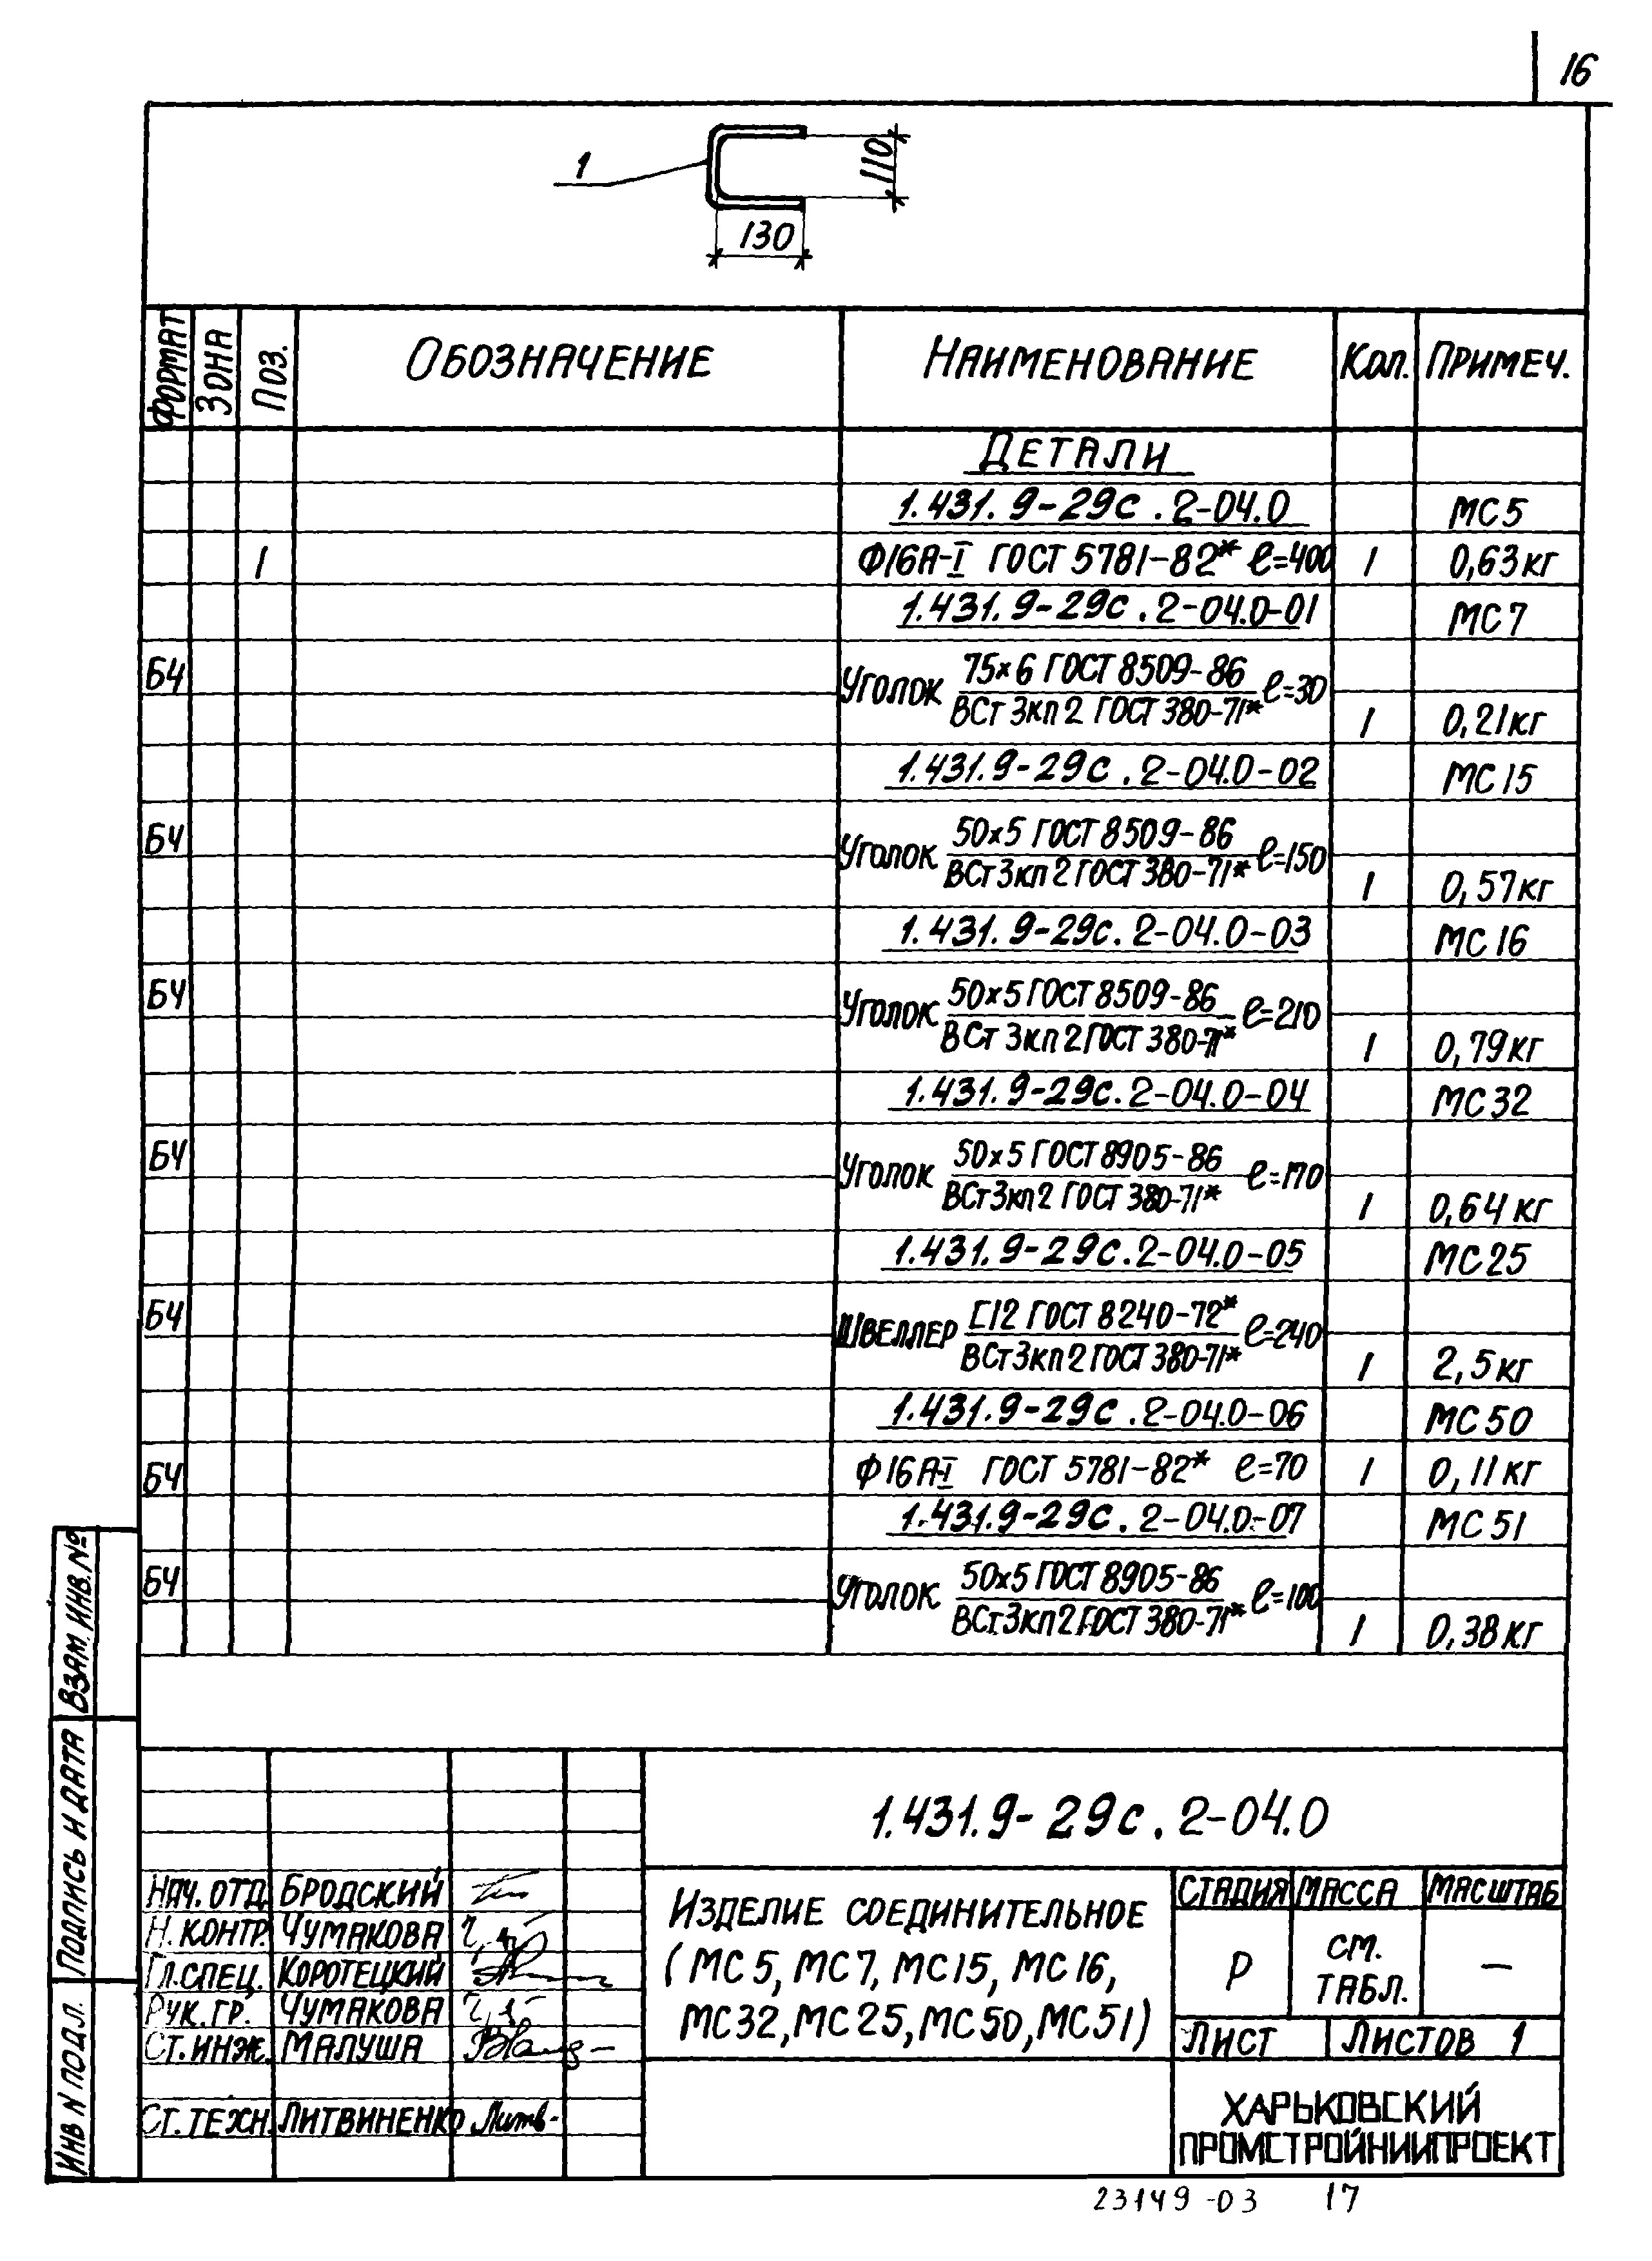 16
1
110
130
ФОРМАТ ЗОНА ПОЗ. ОБОЗНАЧЕНИЕ НАИМЕНОВАНИЕ КОЛ. ПРИМЕЧ.
ДЕТАЛИ
1.431.9-29с.2-04.0 МС5
1 Ф16А-I ГОСТ 5781-82* ℓ=400 1 0,63кг
1.431.9-29с.2-04.0-01 МС7
Б4 УГОЛОК 75×6 ГОСТ 8509-86 ℓ=30
ВСт3кп2 ГОСТ 380-71* 1 0,21кг
1.431.9-29с.2-04.0-02 МС15
Б4 УГОЛОК 50×5 ГОСТ 8509-86 ℓ=150
ВСт3кп2 ГОСТ 380-71* 1 0,57кг
1.431.9-29с.2-04.0-03 МС16
Б4 УГОЛОК 50×5 ГОСТ 8509-86 ℓ=210
ВСт3кп2 ГОСТ 380-71* 1 0,79кг
1.431.9-29с.2-04.0-04 МС32
Б4 УГОЛОК 50×5 ГОСТ 8905-86 ℓ=170
ВСт3кп2 ГОСТ 380-71* 1 0,64кг
1.431.9-29с.2-04.0-05 МС25
Б4 ШВЕЛЛЕР [12 ГОСТ 8240-72* ℓ=240
ВСт3кп2 ГОСТ 380-71* 1 2,5кг
1.431.9-29с.2-04.0-06 МС50
Б4 Ф16А-I ГОСТ 5781-82* ℓ=70 1 0,11кг
1.431.9-29с.2-04.0-07 МС51
Б4 УГОЛОК 50×5 ГОСТ 8905-86 ℓ=100
ВСт3кп2 ГОСТ 380-71* 1 0,38кг
ВЗАМ. ИНВ. №
ПОДПИСЬ И ДАТА
ИНВ N ПОДЛ.
1.431.9-29с.2-04.0
НАЧ. ОТД. БРОДСКИЙ
Н. КОНТР. ЧУМАКОВА
ГЛ. СПЕЦ. КОРОТЕЦКИЙ
РУК. ГР. ЧУМАКОВА
СТ. ИНЖ. МАЛУША
СТ. ТЕХН. ЛИТВИНЕНКО Литв-
ИЗДЕЛИЕ СОЕДИНИТЕЛЬНОЕ
(МС5, МС7, МС15, МС16,
МС32, МС25, МС50, МС51)
СТАДИЯ МАССА МАСШТАБ
Р СМ. ТАБЛ. —
ЛИСТ ЛИСТОВ 1
ХАРЬКОВСКИЙ
ПРОМСТРОЙНИИПРОЕКТ
23149-03 17